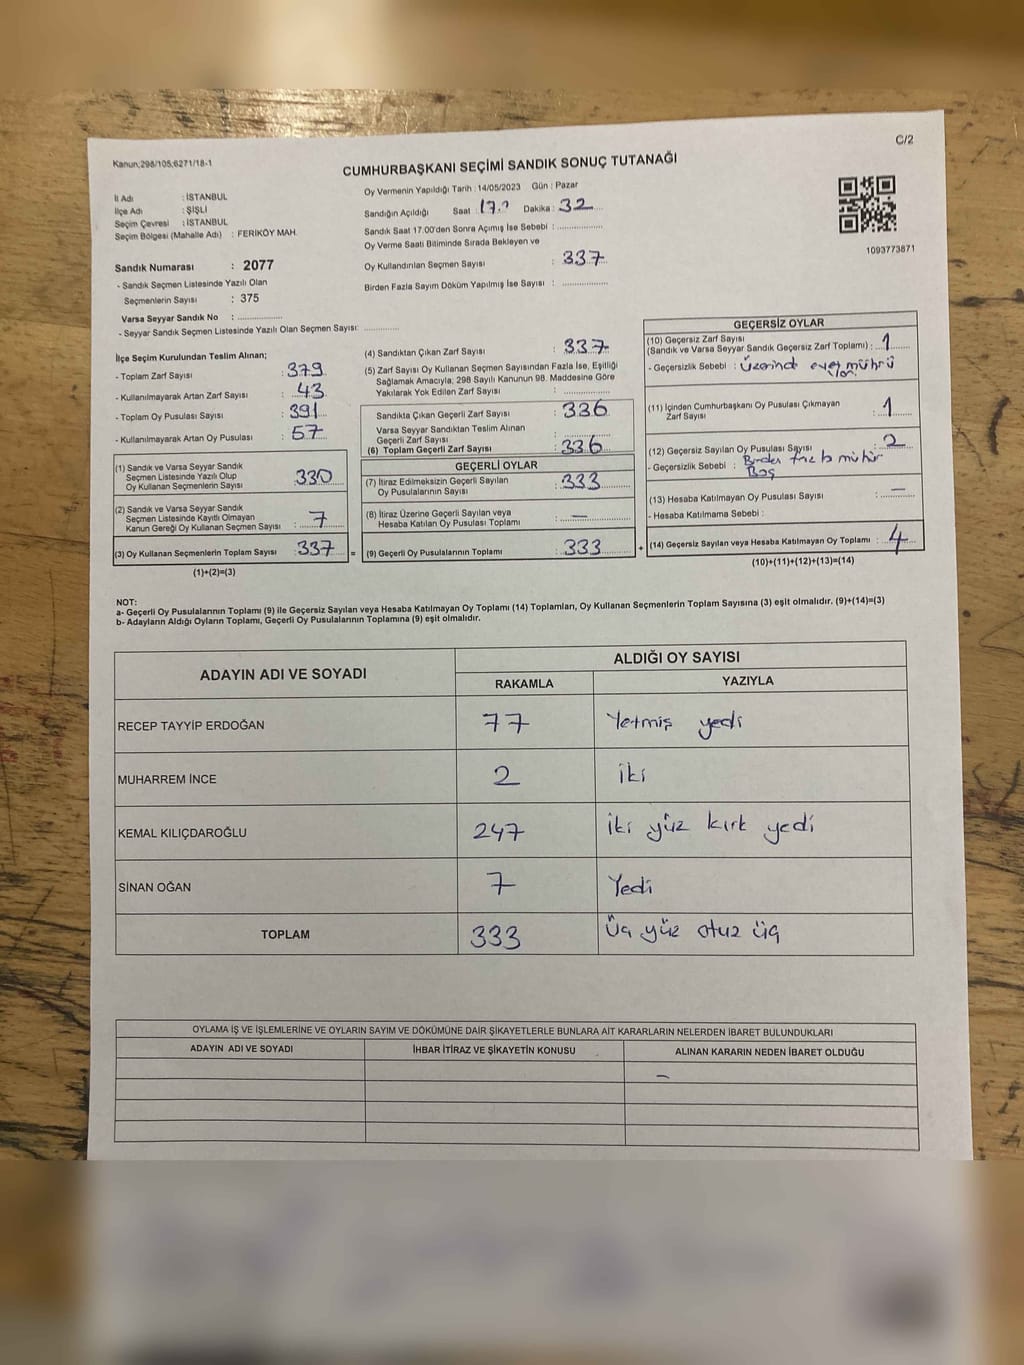 C/2
Kanun;298/105;6271/18-1
CUMHURBAŞKANI SEÇİMİ SANDIK SONUÇ TUTANAĞI
İl Adı : İSTANBUL
İlçe Adı : ŞİŞLİ
Seçim Çevresi : İSTANBUL
Seçim Bölgesi (Mahalle Adı) : FERİKÖY MAH.
Sandık Numarası : 2077
- Sandık Seçmen Listesinde Yazılı Olan
Seçmenlerin Sayısı : 375
Varsa Seyyar Sandık No : ....................
- Seyyar Sandık Seçmen Listesinde Yazılı Olan Seçmen Sayısı: ..............
Oy Vermenin Yapıldığı Tarih : 14/05/2023 Gün : Pazar
Sandığın Açıldığı Saat : 17.? Dakika : 32
Sandık Saat 17.00'den Sonra Açımış İse Sebebi : ..................
Oy Verme Saati Bitiminde Sırada Bekleyen ve
Oy Kullandırılan Seçmen Sayısı : 337
Birden Fazla Sayım Döküm Yapılmış İse Sayısı : ..................
1093773871
İlçe Seçim Kurulundan Teslim Alınan;
- Toplam Zarf Sayısı : 379
- Kullanılmayarak Artan Zarf Sayısı : 43
- Toplam Oy Pusulası Sayısı : 391
- Kullanılmayarak Artan Oy Pusulası : 57
(1) Sandık ve Varsa Seyyar Sandık
Seçmen Listesinde Yazılı Olup
Oy Kullanan Seçmenlerin Sayısı : 330
(2) Sandık ve Varsa Seyyar Sandık
Seçmen Listesinde Kayıtlı Olmayan
Kanun Gereği Oy Kullanan Seçmen Sayısı : 7
(3) Oy Kullanan Seçmenlerin Toplam Sayısı : 337 =
(1)+(2)=(3)
(4) Sandıktan Çıkan Zarf Sayısı : 337
(5) Zarf Sayısı Oy Kullanan Seçmen Sayısından Fazla İse, Eşitliği
Sağlamak Amacıyla, 298 Sayılı Kanunun 98. Maddesine Göre
Yakılarak Yok Edilen Zarf Sayısı : ....................
Sandıkta Çıkan Geçerli Zarf Sayısı : 336
Varsa Seyyar Sandıktan Teslim Alınan
Geçerli Zarf Sayısı : ....................
(6) Toplam Geçerli Zarf Sayısı : 336
GEÇERLİ OYLAR
(7) İtiraz Edilmeksizin Geçerli Sayılan
Oy Pusulalarının Sayısı : 333
(8) İtiraz Üzerine Geçerli Sayılan veya
Hesaba Katılan Oy Pusulası Toplamı : —
(9) Geçerli Oy Pusulalarının Toplamı : 333 +
GEÇERSİZ OYLAR
(10) Geçersiz Zarf Sayısı
(Sandık ve Varsa Seyyar Sandık Geçersiz Zarf Toplamı) : 1
- Geçersizlik Sebebi : Üzerinde evet mührü
(11) İçinden Cumhurbaşkanı Oy Pusulası Çıkmayan
Zarf Sayısı : 1
(12) Geçersiz Sayılan Oy Pusulası Sayısı : 2
- Geçersizlik Sebebi : Birden mühür
Boş
(13) Hesaba Katılmayan Oy Pusulası Sayısı : —
- Hesaba Katılmama Sebebi :
(14) Geçersiz Sayılan veya Hesaba Katılmayan Oy Toplamı : 4
(10)+(11)+(12)+(13)=(14)
NOT:
a- Geçerli Oy Pusulalarının Toplamı (9) ile Geçersiz Sayılan veya Hesaba Katılmayan Oy Toplamı (14) Toplamları, Oy Kullanan Seçmenlerin Toplam Sayısına (3) eşit olmalıdır. (9)+(14)=(3)
b- Adayların Aldığı Oyların Toplamı, Geçerli Oy Pusulalarının Toplamına (9) eşit olmalıdır.
ADAYIN ADI VE SOYADI ALDIĞI OY SAYISI
RAKAMLA YAZIYLA
RECEP TAYYİP ERDOĞAN 77 Yetmiş yedi
MUHARREM İNCE 2 iki
KEMAL KILIÇDAROĞLU 247 iki yüz kırk yedi
SİNAN OĞAN 7 Yedi
TOPLAM 333 Üç yüz otuz üç
OYLAMA İŞ VE İŞLEMLERİNE VE OYLARIN SAYIM VE DÖKÜMÜNE DAİR ŞİKAYETLERLE BUNLARA AİT KARARLARIN NELERDEN İBARET BULUNDUKLARI
ADAYIN ADI VE SOYADI İHBAR İTİRAZ VE ŞİKAYETİN KONUSU ALINAN KARARIN NEDEN İBARET OLDUĞU
—